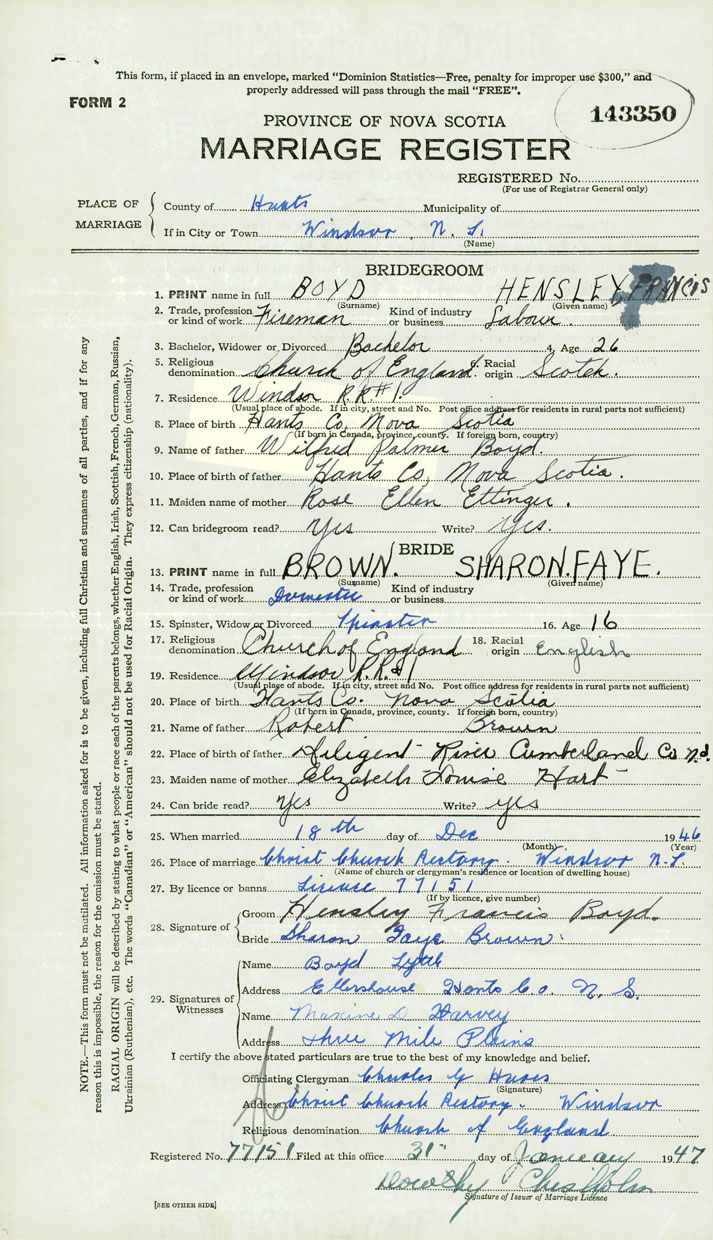 This form, if placed in an envelope, marked "Dominion Statistics—Free, penalty for improper use $300," and
properly addressed will pass through the mail "FREE".
FORM 2
143350
PROVINCE OF NOVA SCOTIA
MARRIAGE REGISTER
REGISTERED No.
(For use of Registrar General only)
PLACE OF MARRIAGE
County of Hants Municipality of
If in City or Town Windsor, N. S.
(Name)
BRIDEGROOM
1. PRINT name in full BOYD HENSLEY, FRANCIS
(Surname) (Given name)
2. Trade, profession or kind of work Fireman Kind of industry or business Labour.
3. Bachelor, Widower or Divorced Bachelor 4. Age 26
5. Religious denomination Church of England. 6. Racial origin Scotch.
7. Residence Windsor R.R#1.
(Usual place of abode. If in city, street and No. Post office address for residents in rural parts not sufficient)
8. Place of birth Hants Co, Nova Scotia
(If born in Canada, province, county. If foreign born, country)
9. Name of father Wilfred Palmer Boyd.
10. Place of birth of father Hants Co, Nova Scotia.
11. Maiden name of mother Rose Ellen Ettinger.
12. Can bridegroom read? Yes Write? Yes.
BRIDE
13. PRINT name in full BROWN. SHARON.FAYE.
(Surname) (Given name)
14. Trade, profession or kind of work Domestic Kind of industry or business
15. Spinster, Widow or Divorced Spinster 16. Age 16
17. Religious denomination Church of England 18. Racial origin English
19. Residence Windsor R.R#1
(Usual place of abode. If in city, street and No. Post office address for residents in rural parts not sufficient)
20. Place of birth Hants Co. Nova Scotia
(If born in Canada, province, county. If foreign born, country)
21. Name of father Robert Brown
22. Place of birth of father Diligent River Cumberland Co
23. Maiden name of mother Elizabeth Louise Hart
24. Can bride read? Yes Write? yes
25. When married 18th day of Dec 1946
(Month) (Year)
26. Place of marriage Christ Church Rectory. Windsor N.S.
(Name of church or clergyman's residence or location of dwelling house)
27. By licence or banns License 77151
(If by licence, give number)
28. Signature of
Groom Hensley Francis Boyd.
Bride Sharon Faye Brown.
29. Signatures of Witnesses
Name Boyd
Address Ellershouse Hants Co. N. S.
Name Maxine D Harvey
Address Three Mile Plains
I certify the above stated particulars are true to the best of my knowledge and belief.
Officiating Clergyman Charles G
(Signature)
Address Christ Church Rectory. Windsor
Religious denomination Church of England
Registered No. 77151 Filed at this office 31" day of January 1947
Dorothy Chisholm
Signature of Issuer of Marriage Licence
[SEE OTHER SIDE]
NOTE.—This form must not be mutilated. All information asked for is to be given, including full Christian and surnames of all parties, and if for any
reason this is impossible, the reason for the omission must be stated.
RACIAL ORIGIN will be described by stating to what people or race each of the parents belongs, whether English, Irish, Scottish, French, German, Russian,
Ukrainian (Ruthenian), etc. The words "Canadian" or "American" should not be used for Racial Origin. They express citizenship (nationality).